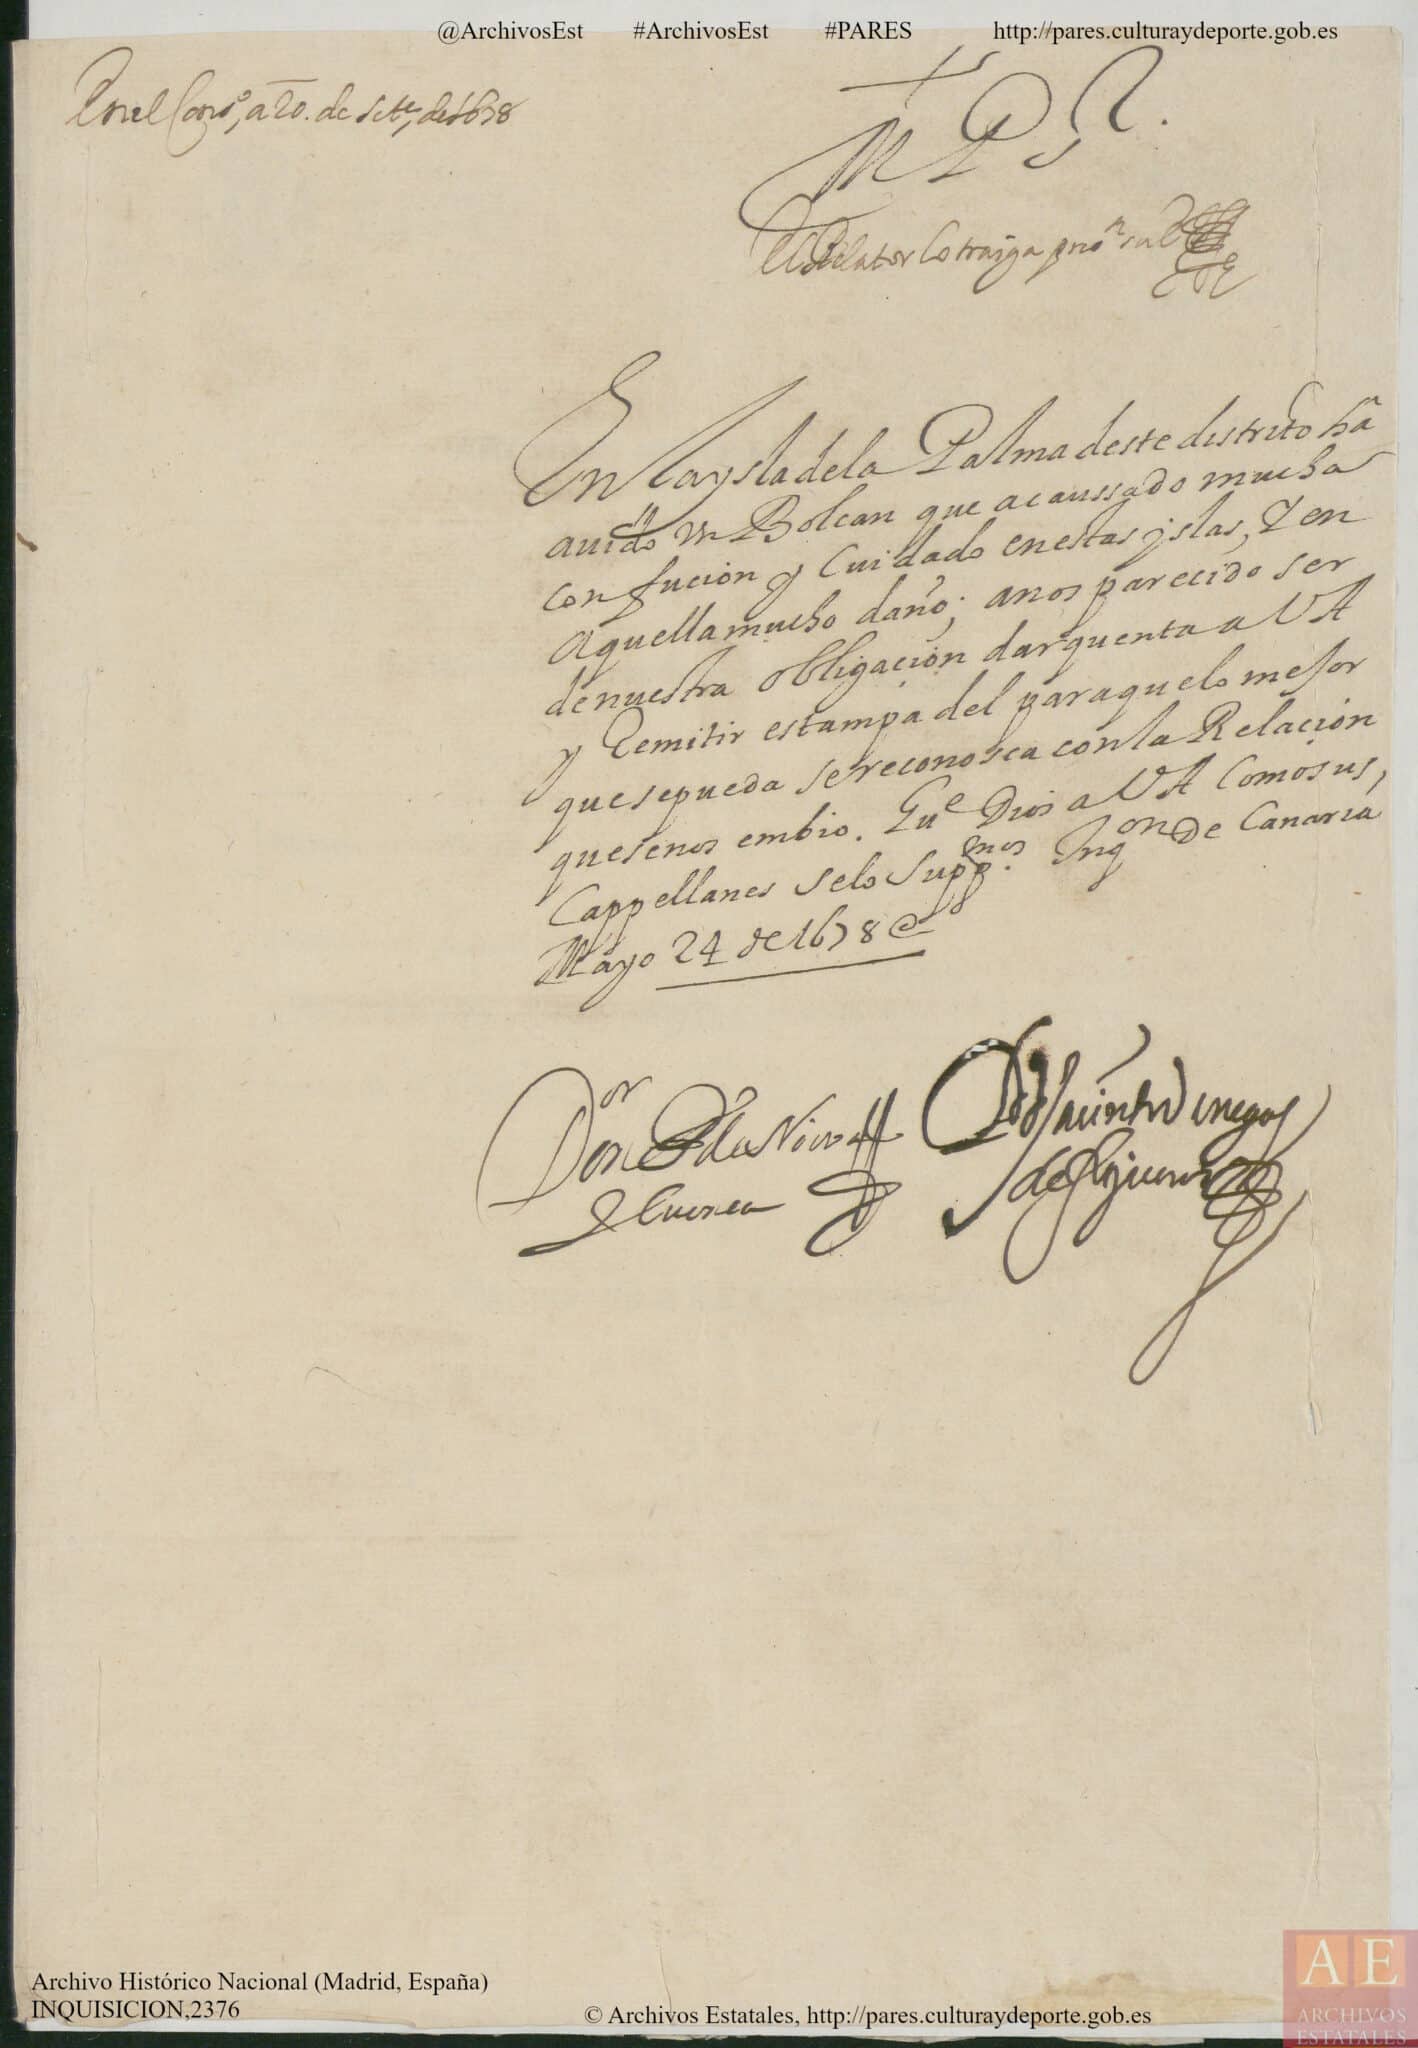 @ArchivosEst #ArchivosEst #PARES http://pares.culturaydeporte.gob.es
En el Conso, a 20. de Sete, de 1678
M P S
El Relator lo traiga
En la ysla de la Palma deste distrito ha
auido vn Bolcan que a caussado mucha
confucion y Cuidado en estas yslas, Y en
Aquella mucho daño; a nos parecido ser
de nuestra obligacion dar quenta a VA
y Remitir estampa del para que lo mejor
que se pueda se reconosca con la Relacion
que se nos embio. Gue Dios a VA Como sus,
Cappellanes se lo Suppmos. Inqon de Canaria
Mayo 24 de 1678
Dor Don
y Cuenca
Archivo Histórico Nacional (Madrid, España)
INQUISICION,2376
© Archivos Estatales, http://pares.culturaydeporte.gob.es
AE
ARCHIVOS
ESTATALES